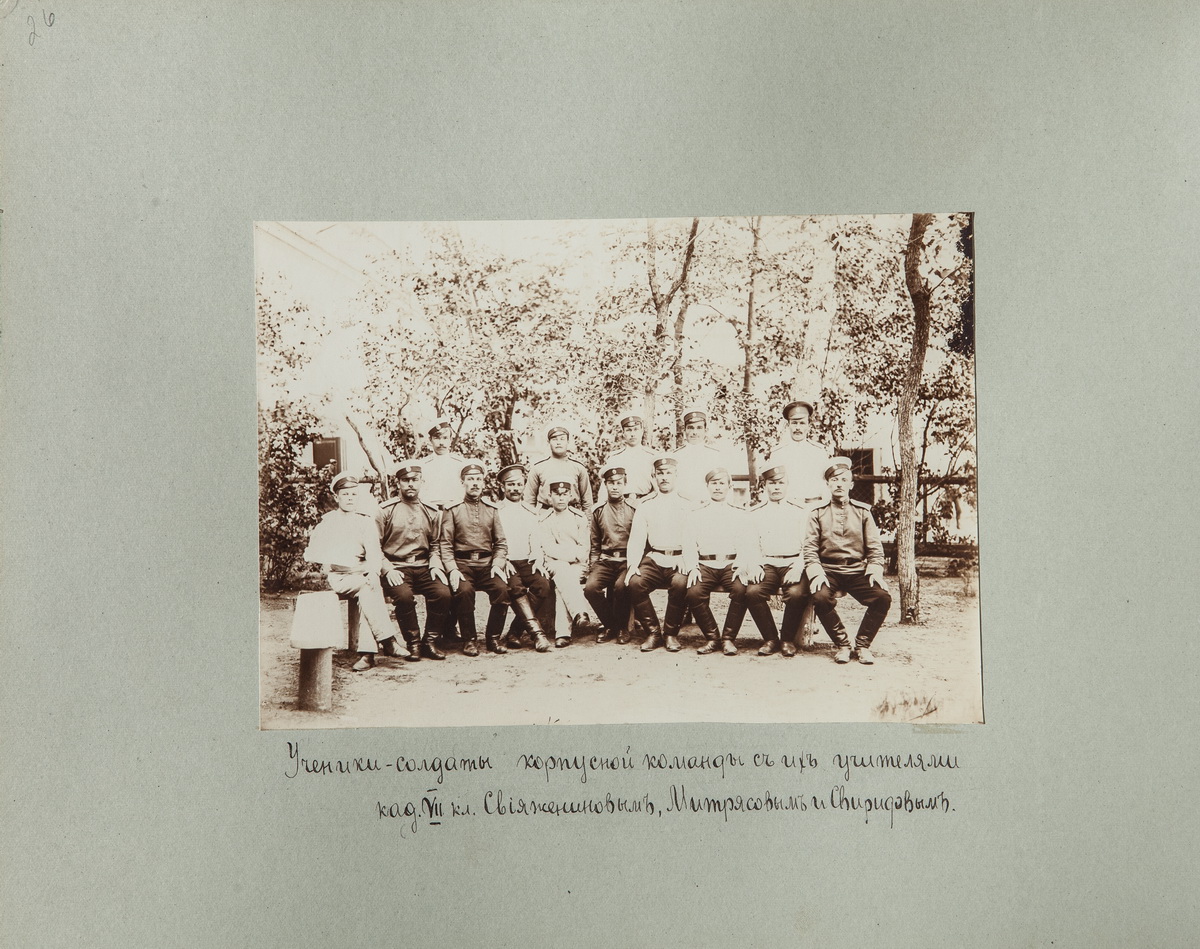 26
Ученики-солдаты корпусной команды съ ихъ учителями
кад. VII кл. Свіяжениновымъ, Митрясовымъ и Свиридовымъ.